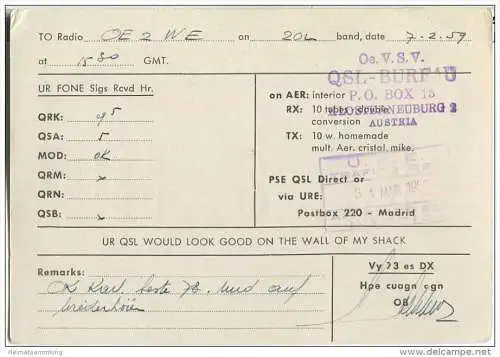 TO Radio OE 2 WE on 20L band, date 7.2.59
at 15 30 GMT.
Oe. V. S. V.
QSL-BUREAU
UR FONE Sigs Rcvd Hr.
on AER: interior P. O. BOX 15
RX: 10 tubes double KLOSTERNEUBURG 2
conversion AUSTRIA
QRK: 95
QSA: 5
TX: 10 w. homemade
mult. Aer. cristal. mike.
MOD: OK
QRM: x
PSE QSL Direct or
via URE:
QRN:
QSB: x
Postbox 220 - Madrid
UR QSL WOULD LOOK GOOD ON THE WALL OF MY SHACK
Remarks:
Ok Karl. beste 73. und auf
wiederhören
Vy 73 es DX
Hpe cuagn ogn
OB
Heimatsammlung